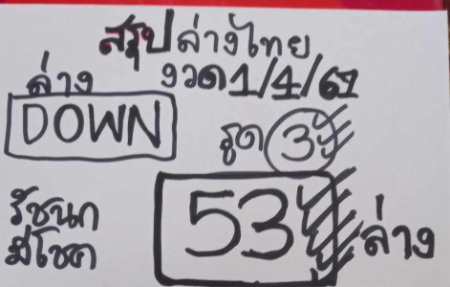 สรุปล่างไทย
ล่าง งวด 1/4/69
DOWN รูด 3
รัชนก มีโชค 53 ล่าง